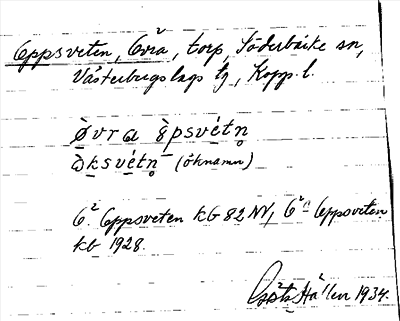 Eppsveten, Övra, torp, Söderbärke sn,
Västerbergslags tg, Kopp. l.
ø̀vra ὲpsvétn̥
ὲksvétn̥ (öknamn)
Ö. Eppsveten kG 82 NV, Ö. Eppsveten
kb 1928.
Gösta Hallen 1934.